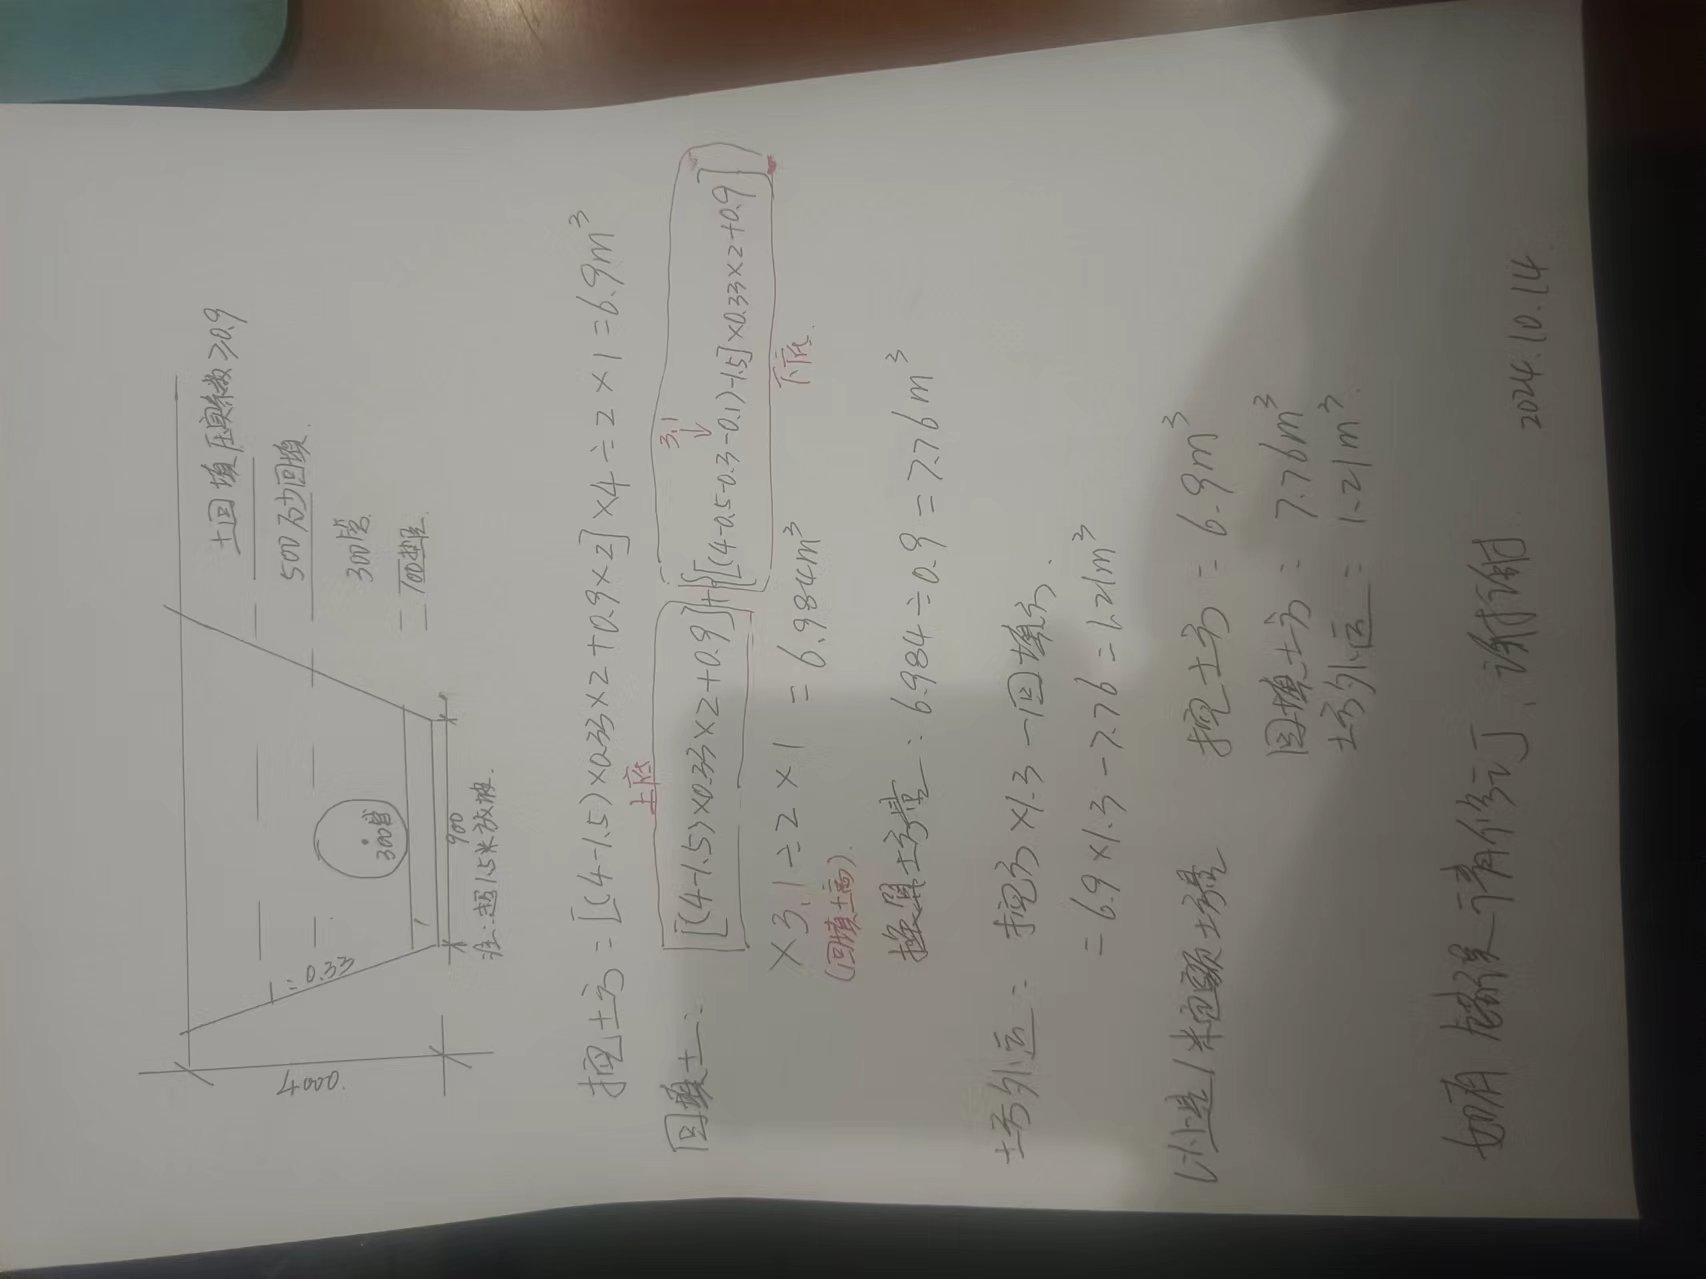 土回填压实系数≥0.9
500石少回填.
300管
100垫层
1:0.33
300管
4000
900
注:超1.5米放坡.
挖土方=[(4-1.5)×0.33×2+0.9×2]×4÷2×1=6.9m³
上底
3.1
回填土: [(4-1.5)×0.33×2+0.9]+{[(4-0.5-0.3-0.1)-1.5]×0.33×2+0.9}
下底
×3.1÷2×1=6.984m³
(回填土高).
换算土方量:6.984÷0.9=7.76m³
土方外运:挖方×1.3-回填方.
=6.9×1.3-7.76=1.21m³
以上是1米定额土方量 挖土方=6.9m³
回填土方:7.76m³
土方外运=1.21m³
如有错误请修订、谢谢
2024.10.14